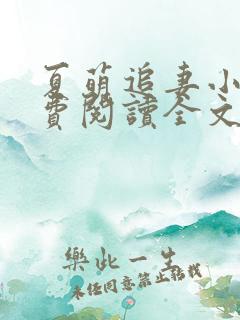 夏萌追妻小
費閱讀全文
樂此一生
未經同意禁止轉載